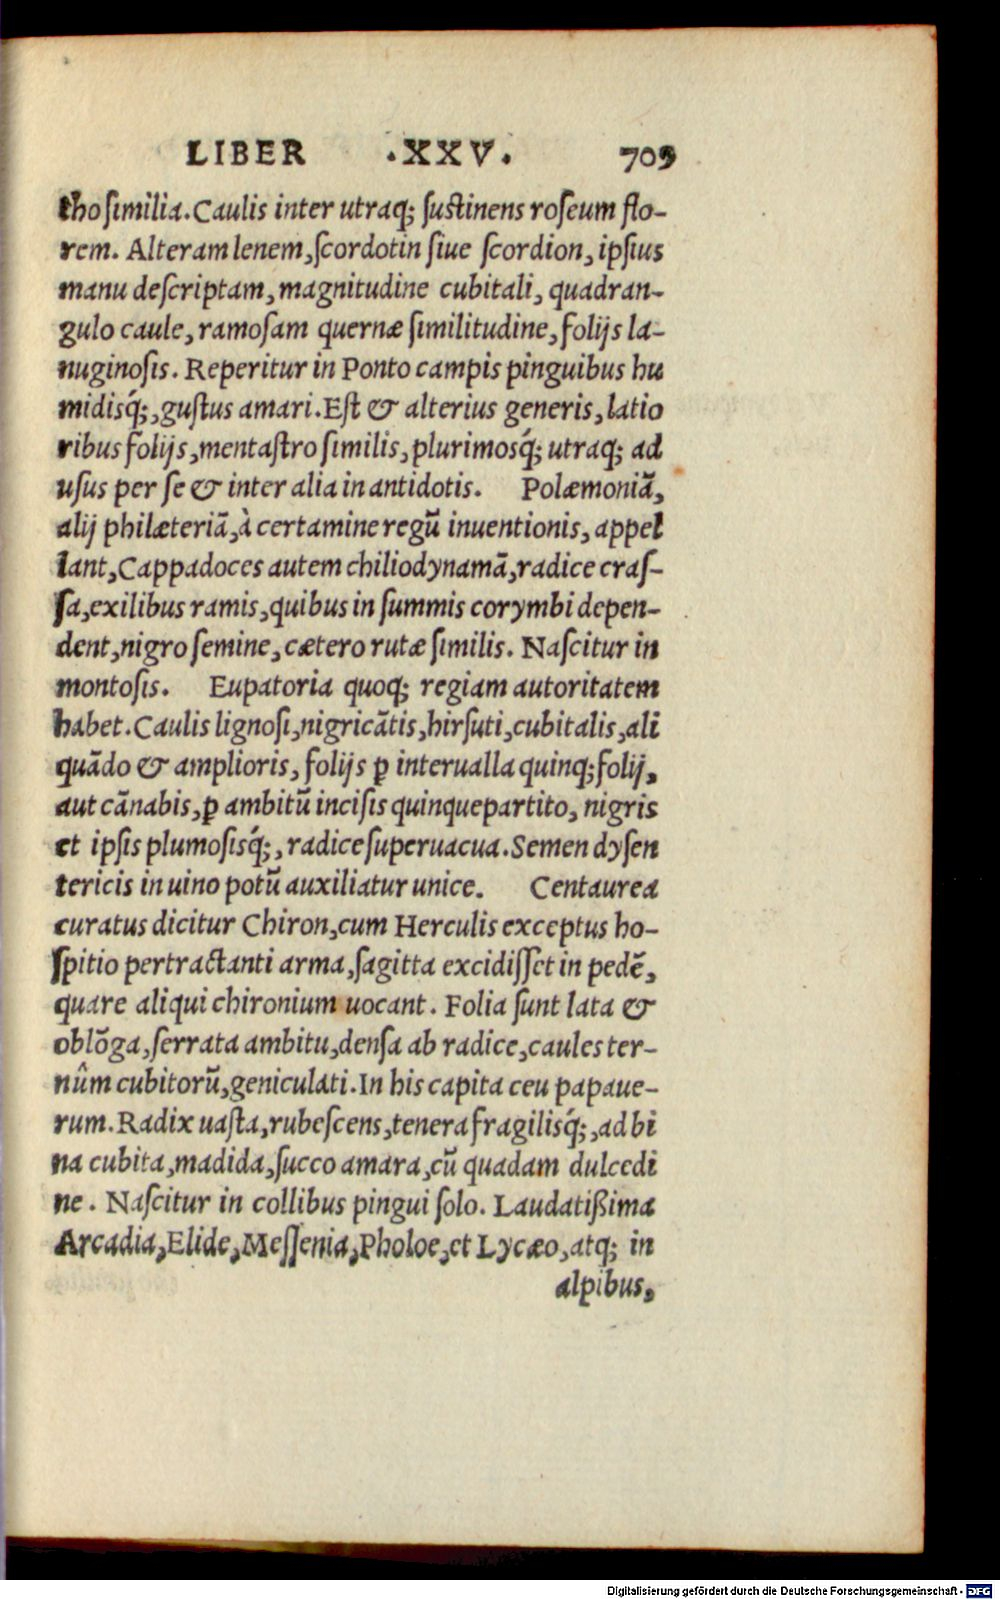 LIBER .XXV. 709
tho ſimilia. Caulis inter utraq; ſuſtinens roſeum flo-
rem. Alteram lenem, ſcordotin ſiue ſcordion, ipſius
manu deſcriptam, magnitudine cubitali, quadran-
gulo caule, ramoſam quernæ ſimilitudine, folijs la-
nuginoſis. Reperitur in Ponto campis pinguibus hu
midisq́;, guſtus amari. Eſt & alterius generis, latio
ribus folijs, mentaſtro ſimilis, plurimosq́; utraq; ad
uſus per ſe & inter alia in antidotis. Polæmoniā,
alij philæteriā, à certamine regū inuentionis, appel
lant, Cappadoces autem chiliodynamā, radice craſ-
ſa, exilibus ramis, quibus in ſummis corymbi depen-
dent, nigro ſemine, cætero rutæ ſimilis. Naſcitur in
montoſis. Eupatoria quoq; regiam autoritatem
habet. Caulis lignoſi, nigricātis, hirſuti, cubitalis, ali
quādo & amplioris, folijs ꝑ interualla quinq; folij,
aut cānabis, ꝑ ambitū inciſis quinquepartito, nigris
et ipſis plumoſisq́;, radice ſuperuacua. Semen dyſen
tericis in uino potū auxiliatur unice. Centaurea
curatus dicitur Chiron, cum Herculis exceptus ho-
ſpitio pertractanti arma, ſagitta excidiſſet in pedē,
quare aliqui chironium uocant. Folia ſunt lata &
oblōga, ſerrata ambitu, denſa ab radice, caules ter-
nûm cubitorū, geniculati. In his capita ceu papaue-
rum. Radix uaſta, rubeſcens, tenera fragilisq́;, ad bi
na cubita, madida, ſucco amara, cū quadam dulcedi
ne. Naſcitur in collibus pingui ſolo. Laudatißima
Arcadia, Elide, Meſſenia, Pholoe, et Lycæo, atq; in
alpibus,
Digitalisierung gefördert durch die Deutsche Forschungsgemeinschaft - DFG